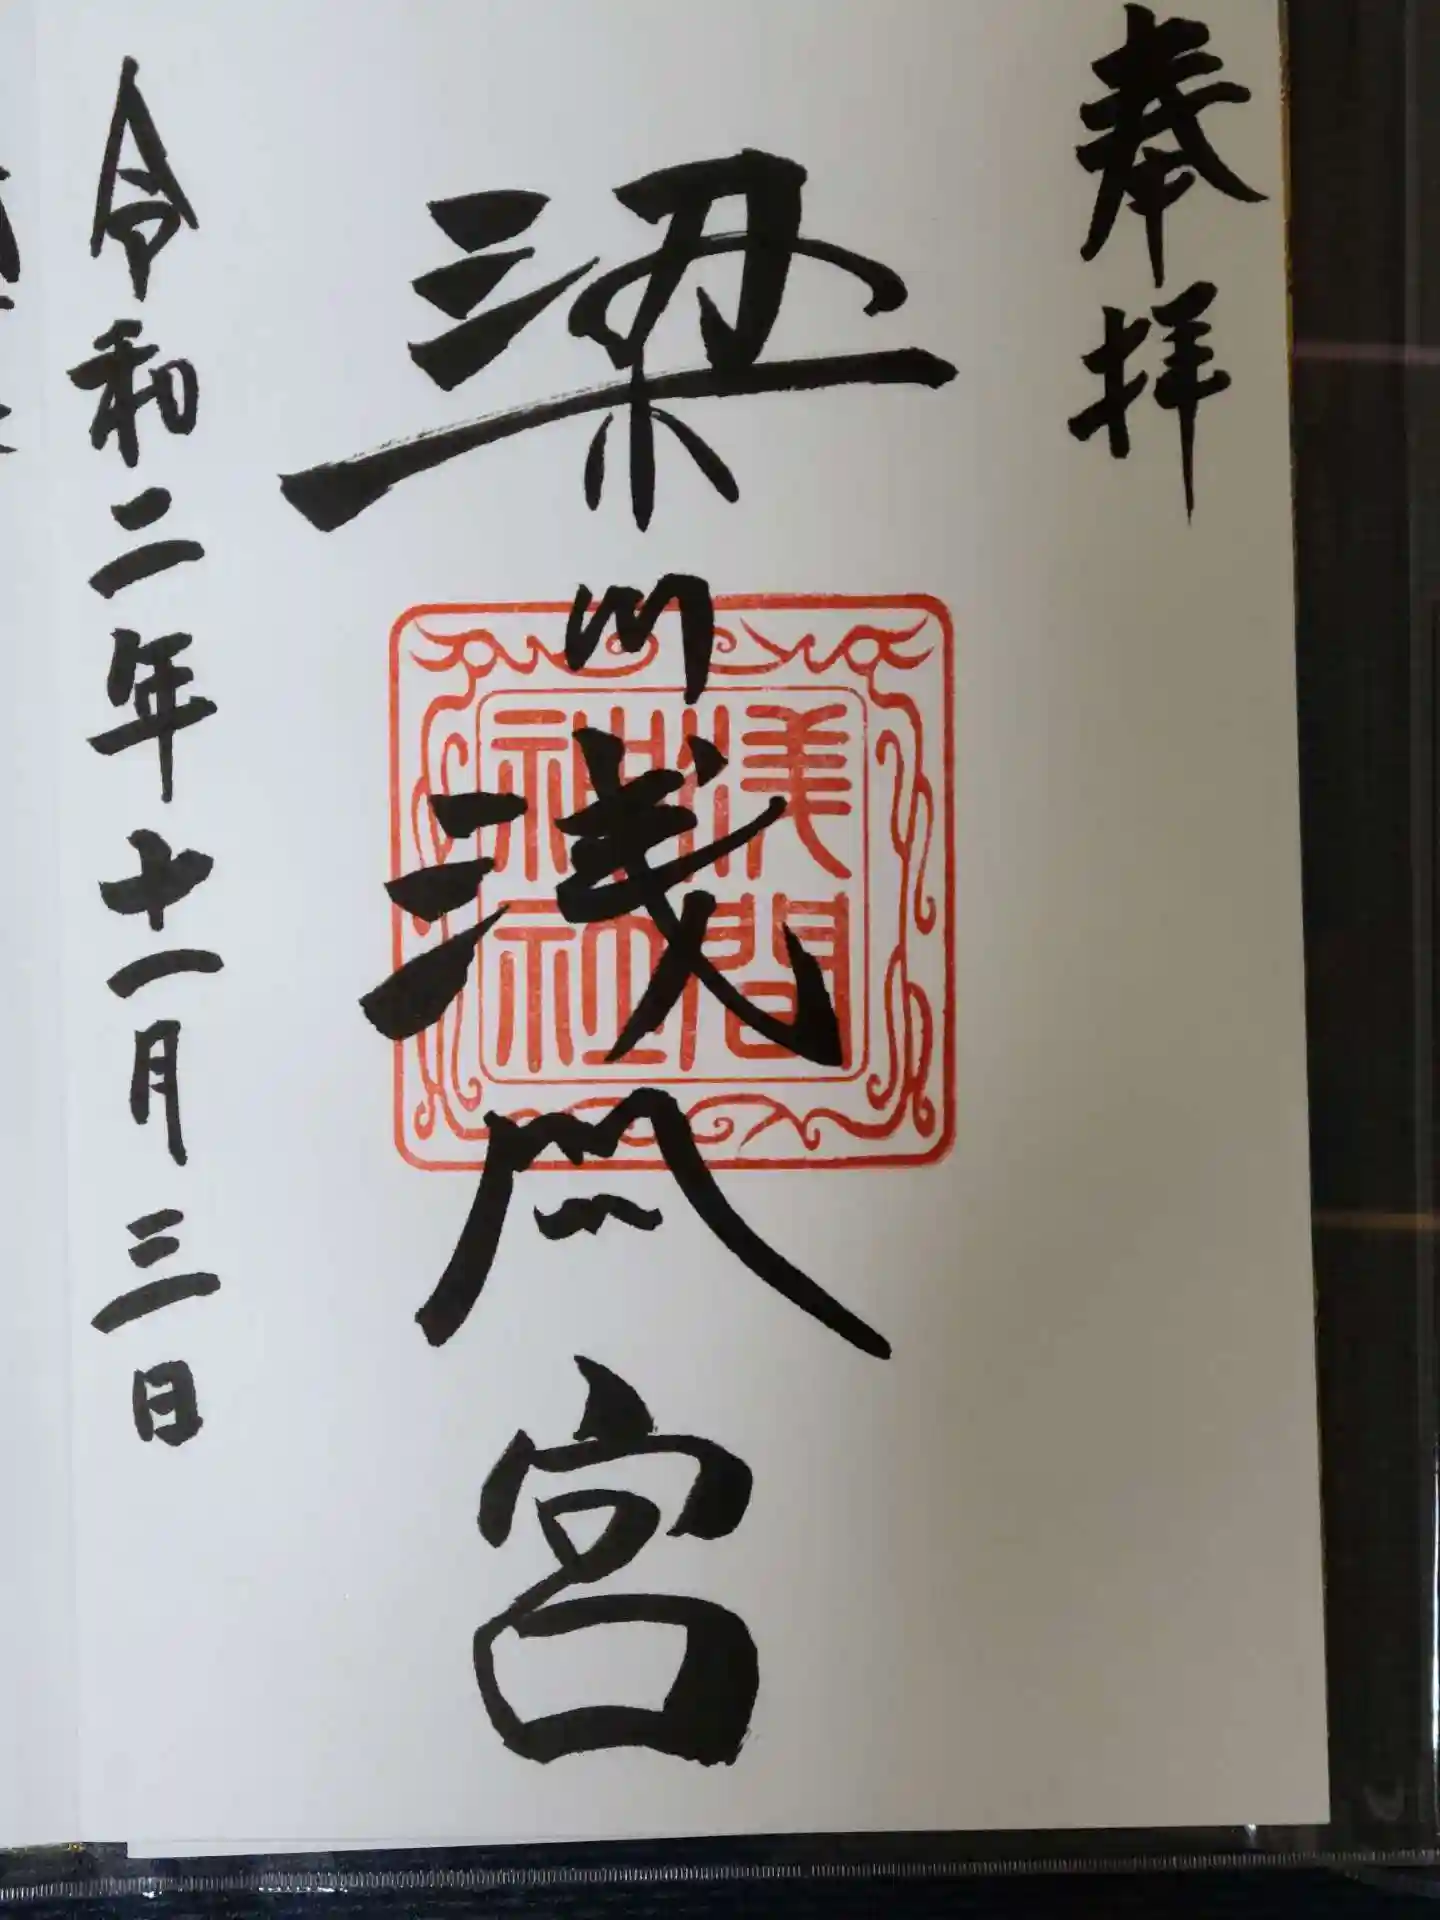 奉拝
梁川浅间宮
浅間
神社
令和二年十一月三日